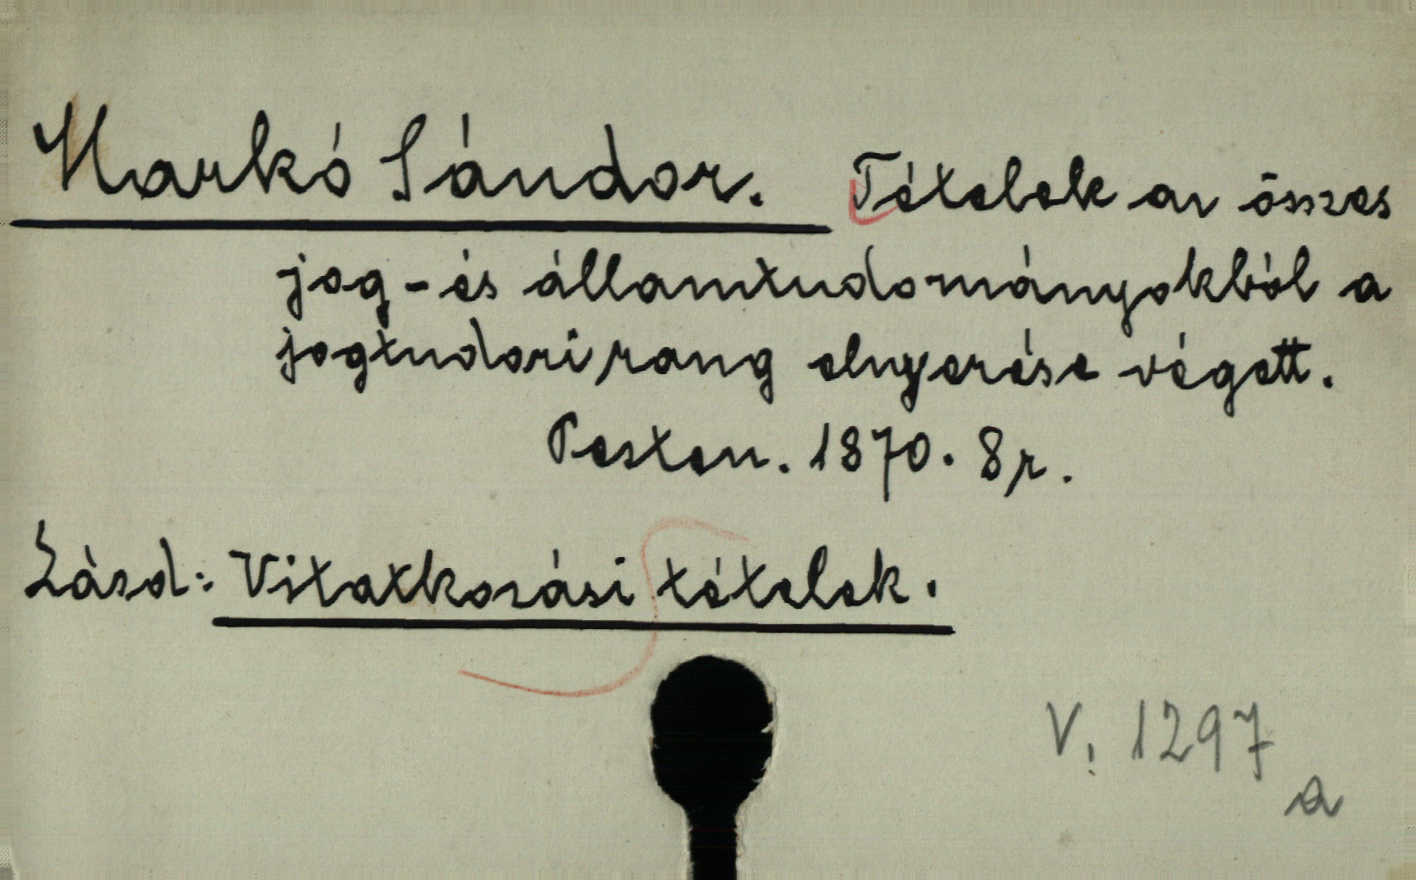 Markó Sándor. Tételek az összes
jog-és államtudományokból a
jogtudori rang elnyerése végett.
Pesten. 1870. 8r.
Lásd: Vitatkozási tételek.
V. 1297
a